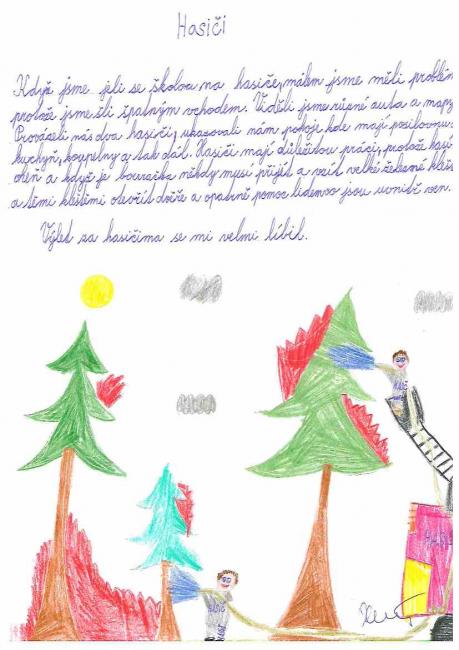 Hasiči
Když jsme jeli se školou na hasiče, málem jsme měli problém
protože jsme šli špatným vchodem. Viděli jsme různé auta a mapy
Provázeli nás dva hasiči, ukazovali nám pokoje kde mají posilovnu,
kuchyň, koupelny a tak dál. Hasiči mají důležitou práci, protože hasí
oheň a když je bouračka někdy musí přijít a vzít velké železné kleště
a těmi kleštěmi otevřít dvéře a opatrně pomoc lidem co jsou uvnitř ven.
Výlet za hasičima se mi velmi líbil.